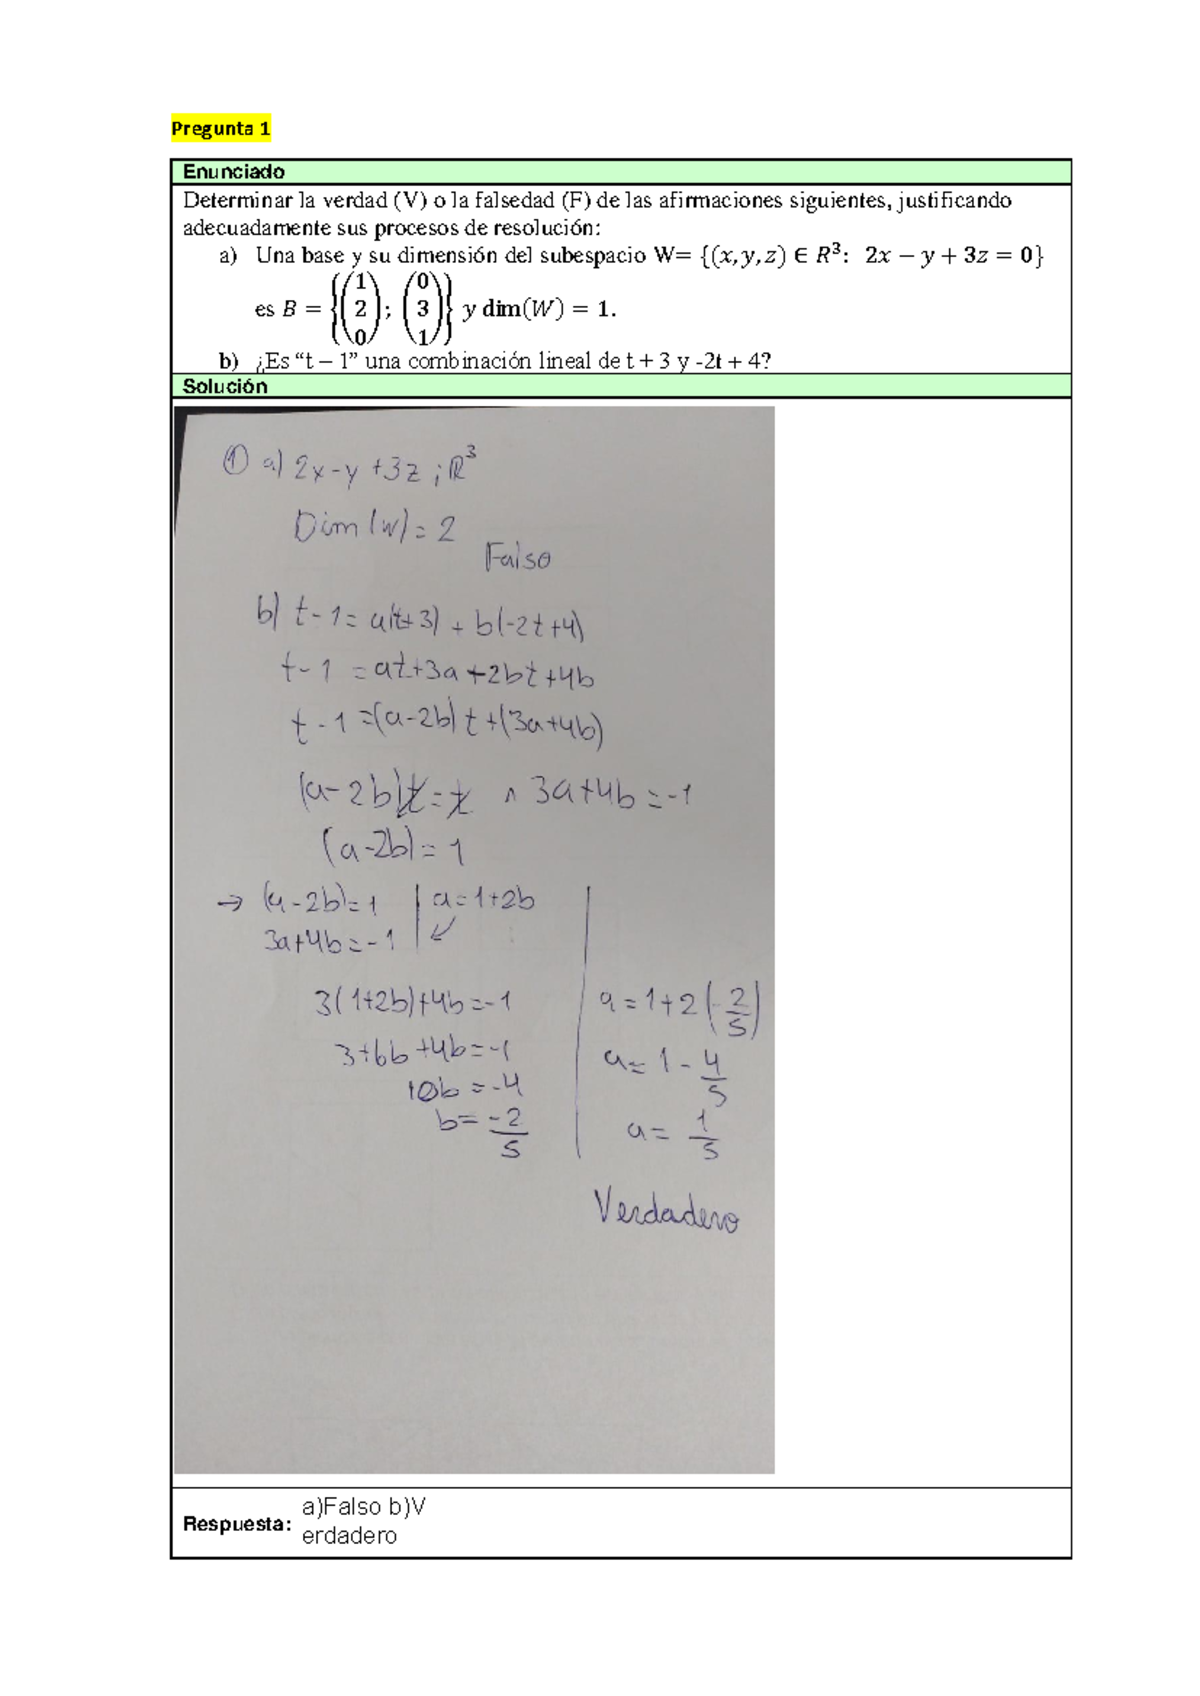 Pregunta 1
Enunciado
Determinar la verdad (V) o la falsedad (F) de las afirmaciones siguientes, justificando
adecuadamente sus procesos de resolución:
a) Una base y su dimensión del subespacio W= {(x, y, z) ∈ R³: 2x − y + 3z = 0}
es B = {(1 2 0); (0 3 1)} y dim(W) = 1.
b) ¿Es “t – 1” una combinación lineal de t + 3 y -2t + 4?
Solución
① a) 2x-y+3z ; ℝ³
Dim(W)= 2
Falso
b) t-1= a(t+3) + b(-2t+4)
t-1 = at+3a+2bt+4b
t-1=(a-2b)t+(3a+4b)
(a-2b)t=t ∧ 3a+4b=-1
(a-2b)=1
→ (a-2b)=1 | a=1+2b
3a+4b=-1 ↙
3(1+2b)+4b=-1
3+6b+4b=-1
10b=-4
b= -2/5
a=1+2(-2/5)
a=1-4/5
a= 1/5
Verdadero
Respuesta: a)Falso b)V
erdadero